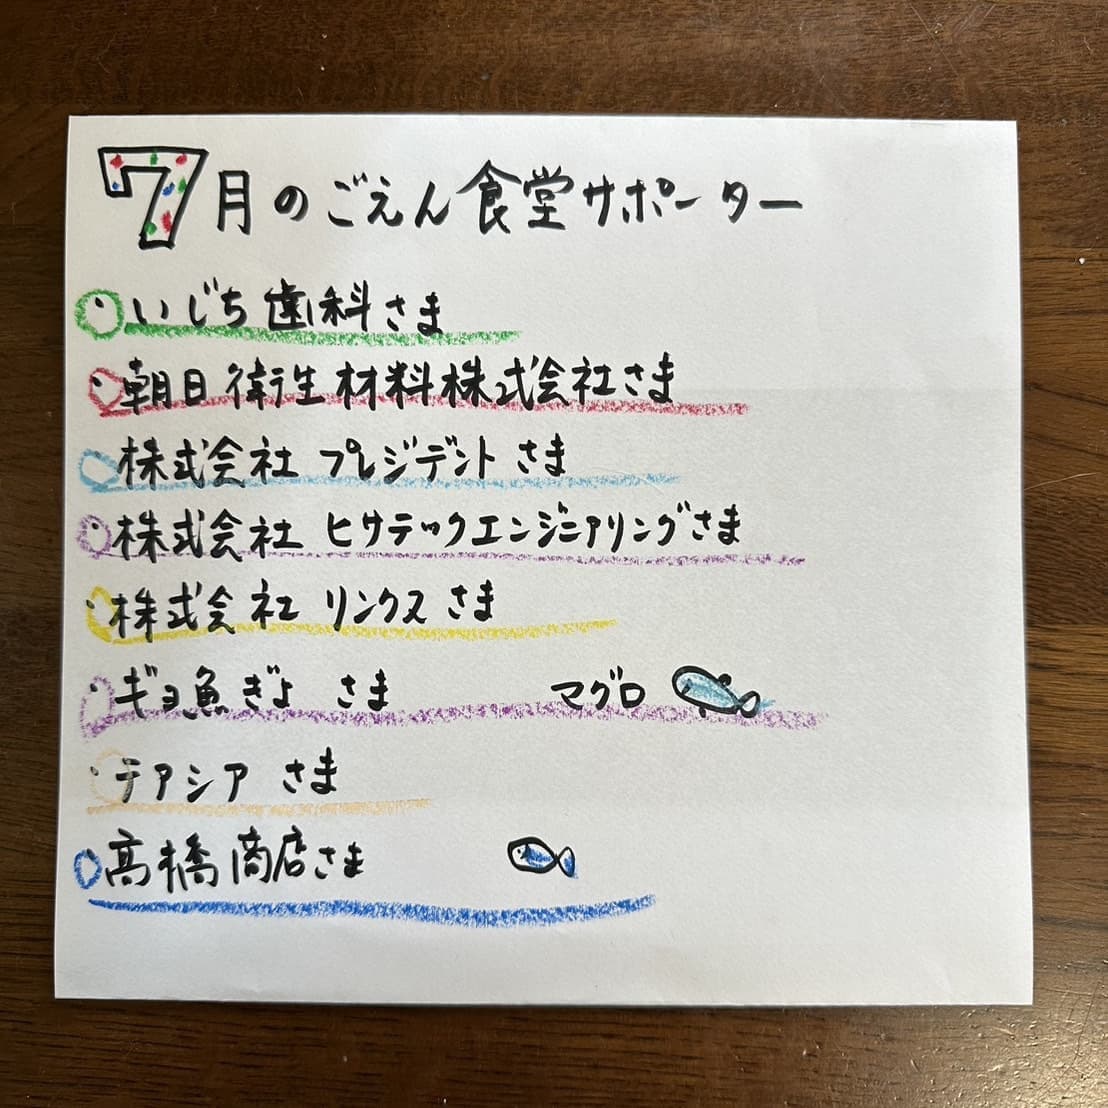 7月のごえん食堂サポーター
いじち歯科さま
朝日衛生材料株式会社さま
株式会社 プレジデント さま
株式会社 ヒサテックエンジニアリングさま
株式会社 リンクス さま
ギョ魚ぎょ さま マグロ
テアシア さま
高橋商店さま